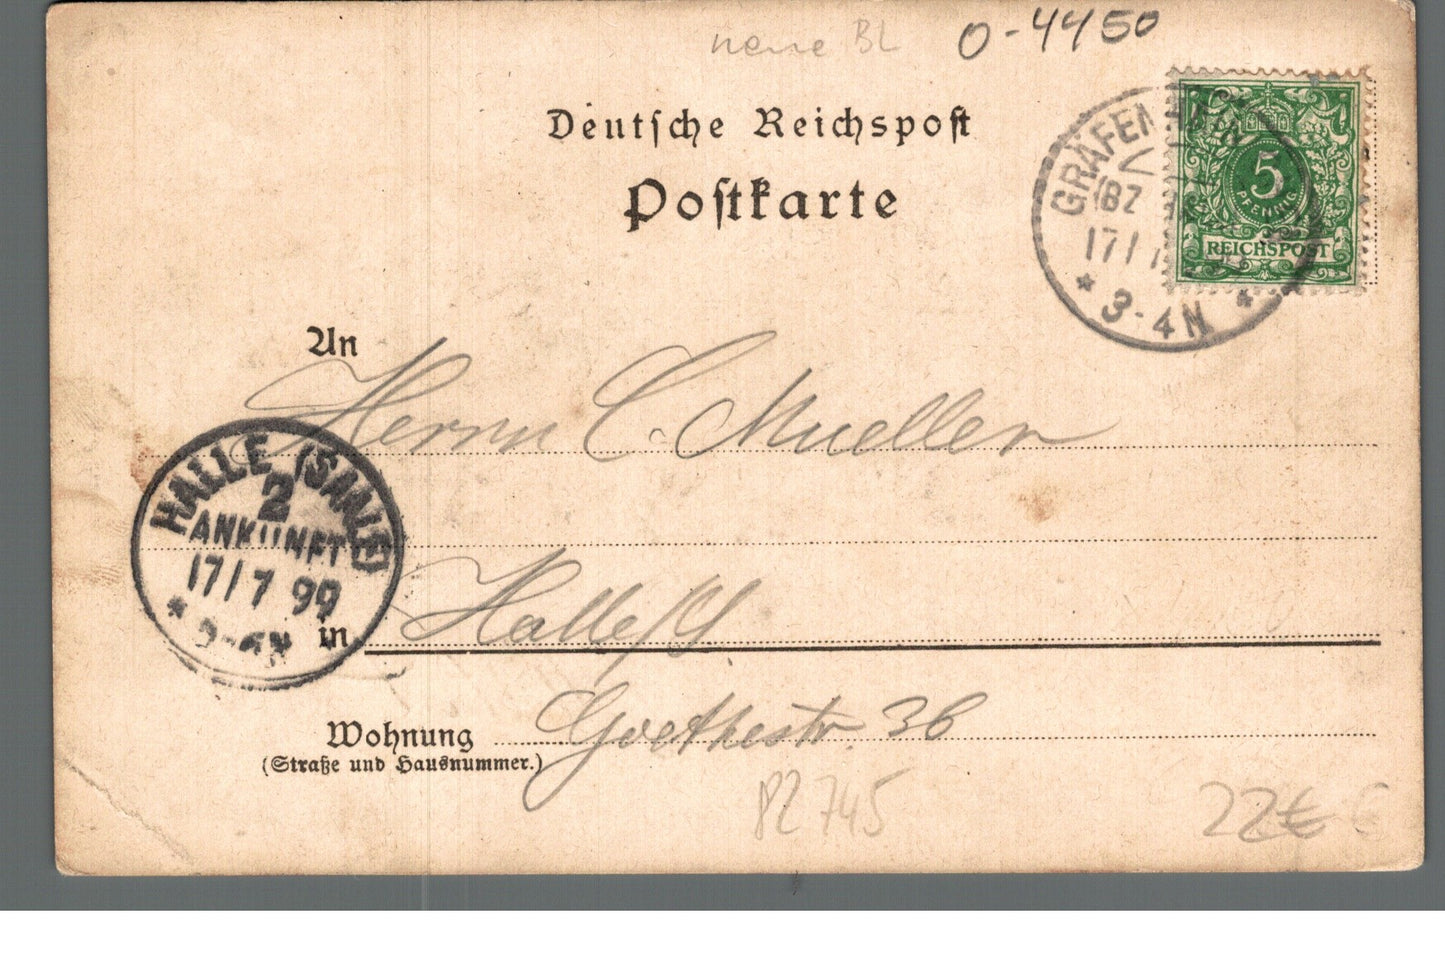 neue BL
0-4450
Deutsche Reichspost
Postkarte
GRÄFENHAIN
BZ
17/7
* 3-4N *
5
PFENNIG
REICHSPOST
An
Herrn C. Mueller
HALLE (SAALE)
2
ANKUNFT
17/7 99
in
Halle/S
Wohnung
Goethestr. 36
(Straße und Hausnummer.)
82745
22€